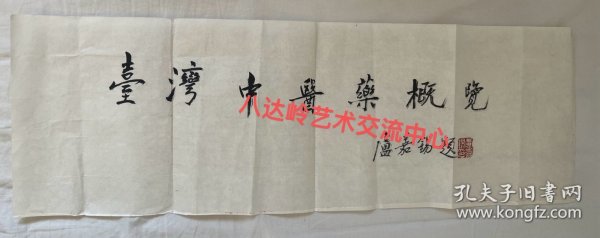 臺灣中醫藥概覽
八达岭艺术交流中心
盧嘉錫題
孔夫子旧书网
www.kongfz.com